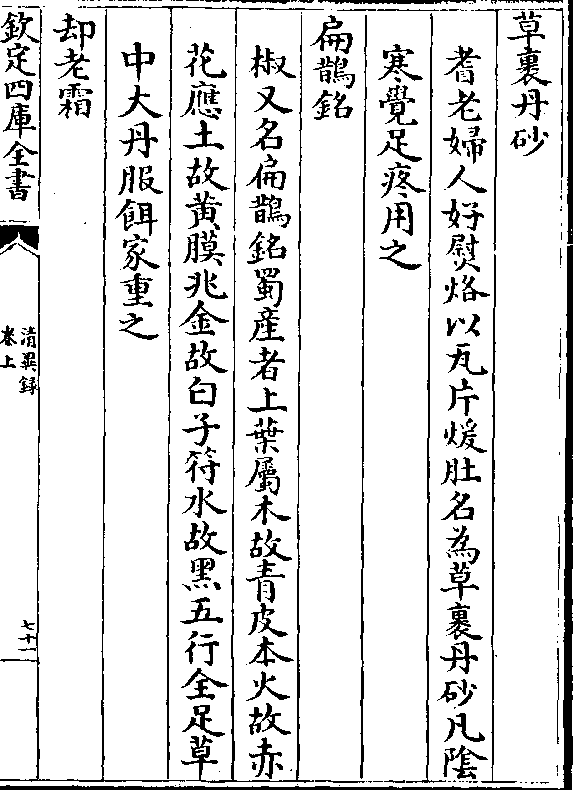 草裹丹砂
耆老婦人好熨烙以瓦片煖肚名為草裹丹砂凡陰
寒覺足疼用之
扁鵲銘
椒又名扁鵲銘蜀産者上葉屬木故青皮本火故赤
花應土故黄膜兆金故白子符水故黒五行全足草
中大丹服餌家重之
却老霜
欽定四庫全書
清異録
卷上
七十一